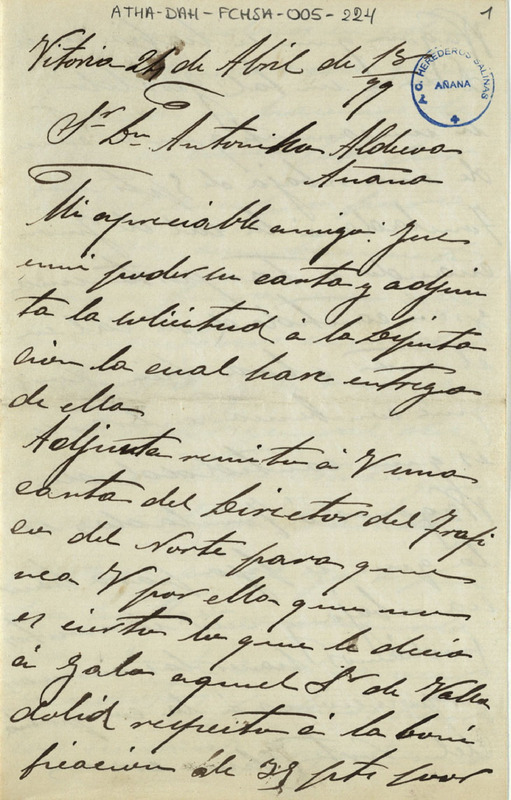 ATHA-DAH-FCHSA-005-224
1
A.C. HEREDEROS SALINAS
AÑANA
Vitoria 26 de Abril de 13/99
Sr Dn Antonino Aldecoa
Anana
Mi apreciable amigo: Jue
en mi poder su carta y adjun
ta la solicitud á la Diputa
cion la cual hare entrega
de ella
Adjunta remito á V una
carta del Director del Trafi
co del Norte para que
vea V por ella que no
es cierto lo que le decia
á Gala aquel Sr de Valla
dolid respecto á la boni
ficacion de pts por